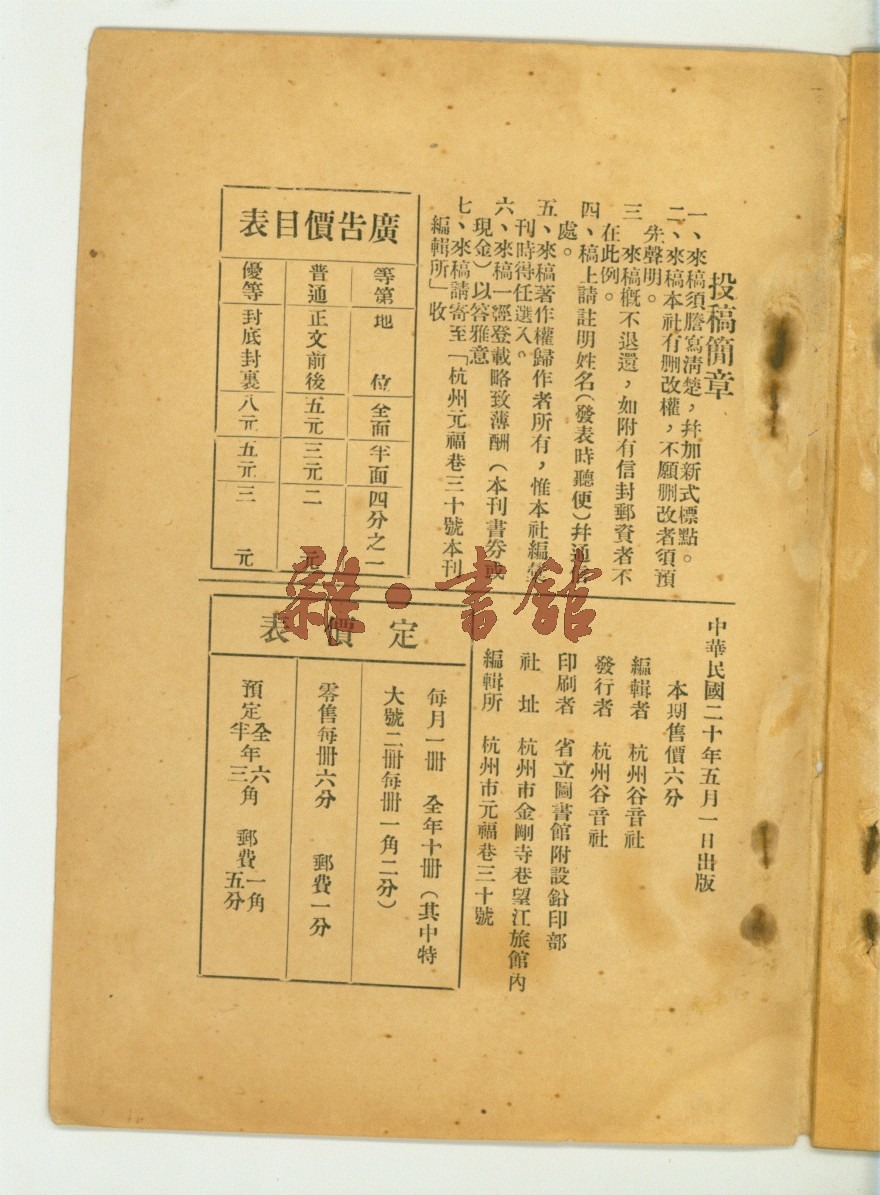 投稿簡章
一、來稿須謄寫清楚，幷加新式標點。
二、來稿本社有删改權，不願删改者須預
先聲明。
三　來稿槪不退還，如附有信封郵資者不
在此例。
四、稿上請註明姓名（發表時聽便）幷通信
處。
五、來稿著作權歸作者所有，惟本社編彙
刊時得任選入。
六、來稿一經登載略致薄酬（本刊書券或
現金）以答雅意
七、來稿請寄至「杭州元福巷三十號本刊
編輯所」收
廣告價目表
等第　地位　全面　半面　四分之一
普通　正文前後　五元　三元　二元
優等　封底封裏　八元　五元　三元
中華民國二十年五月一日出版
本期售價六分
編輯者　杭州谷音社
發行者　杭州谷音社
印刷者　省立圖書館附設鉛印部
社址　杭州市金剛寺巷望江旅館內
編輯所　杭州市元福巷三十號
定價表
每月一冊　全年十冊（其中特
大號二冊每冊一角二分）
零售每冊六分　郵費一分
預定全半年六三角　郵費一角五分
雜·書館